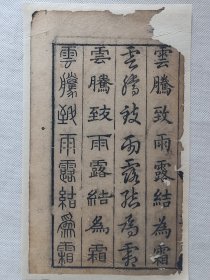 雲騰致雨露結為霜
雲騰致雨露結為霜
雲騰致雨露結為霜
雲騰致雨露結為霜